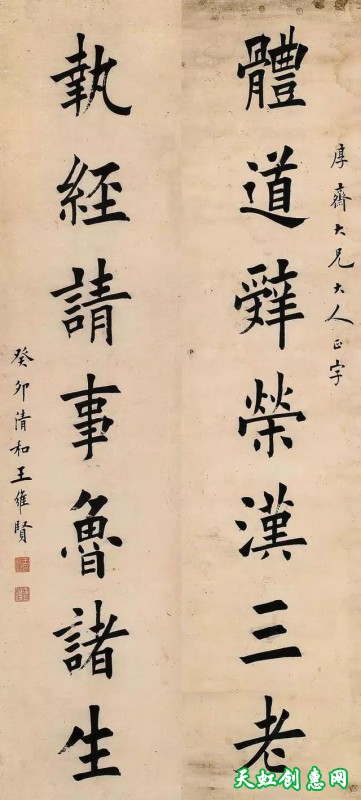 厚齋大兄大人正字
體道辭榮漢三老
執經請事魯諸生
癸卯清和王維賢
天虹创惠网